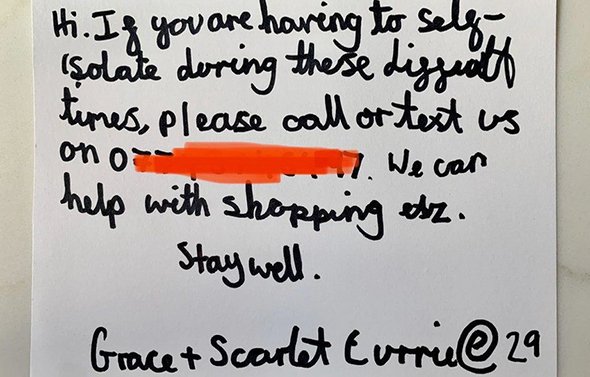 Hi. If you are having to self-
isolate during these difficult
times, please call or text us
on 0. We can
help with shopping etc.
Stay well.
Grace + Scarlet Currie @ 29